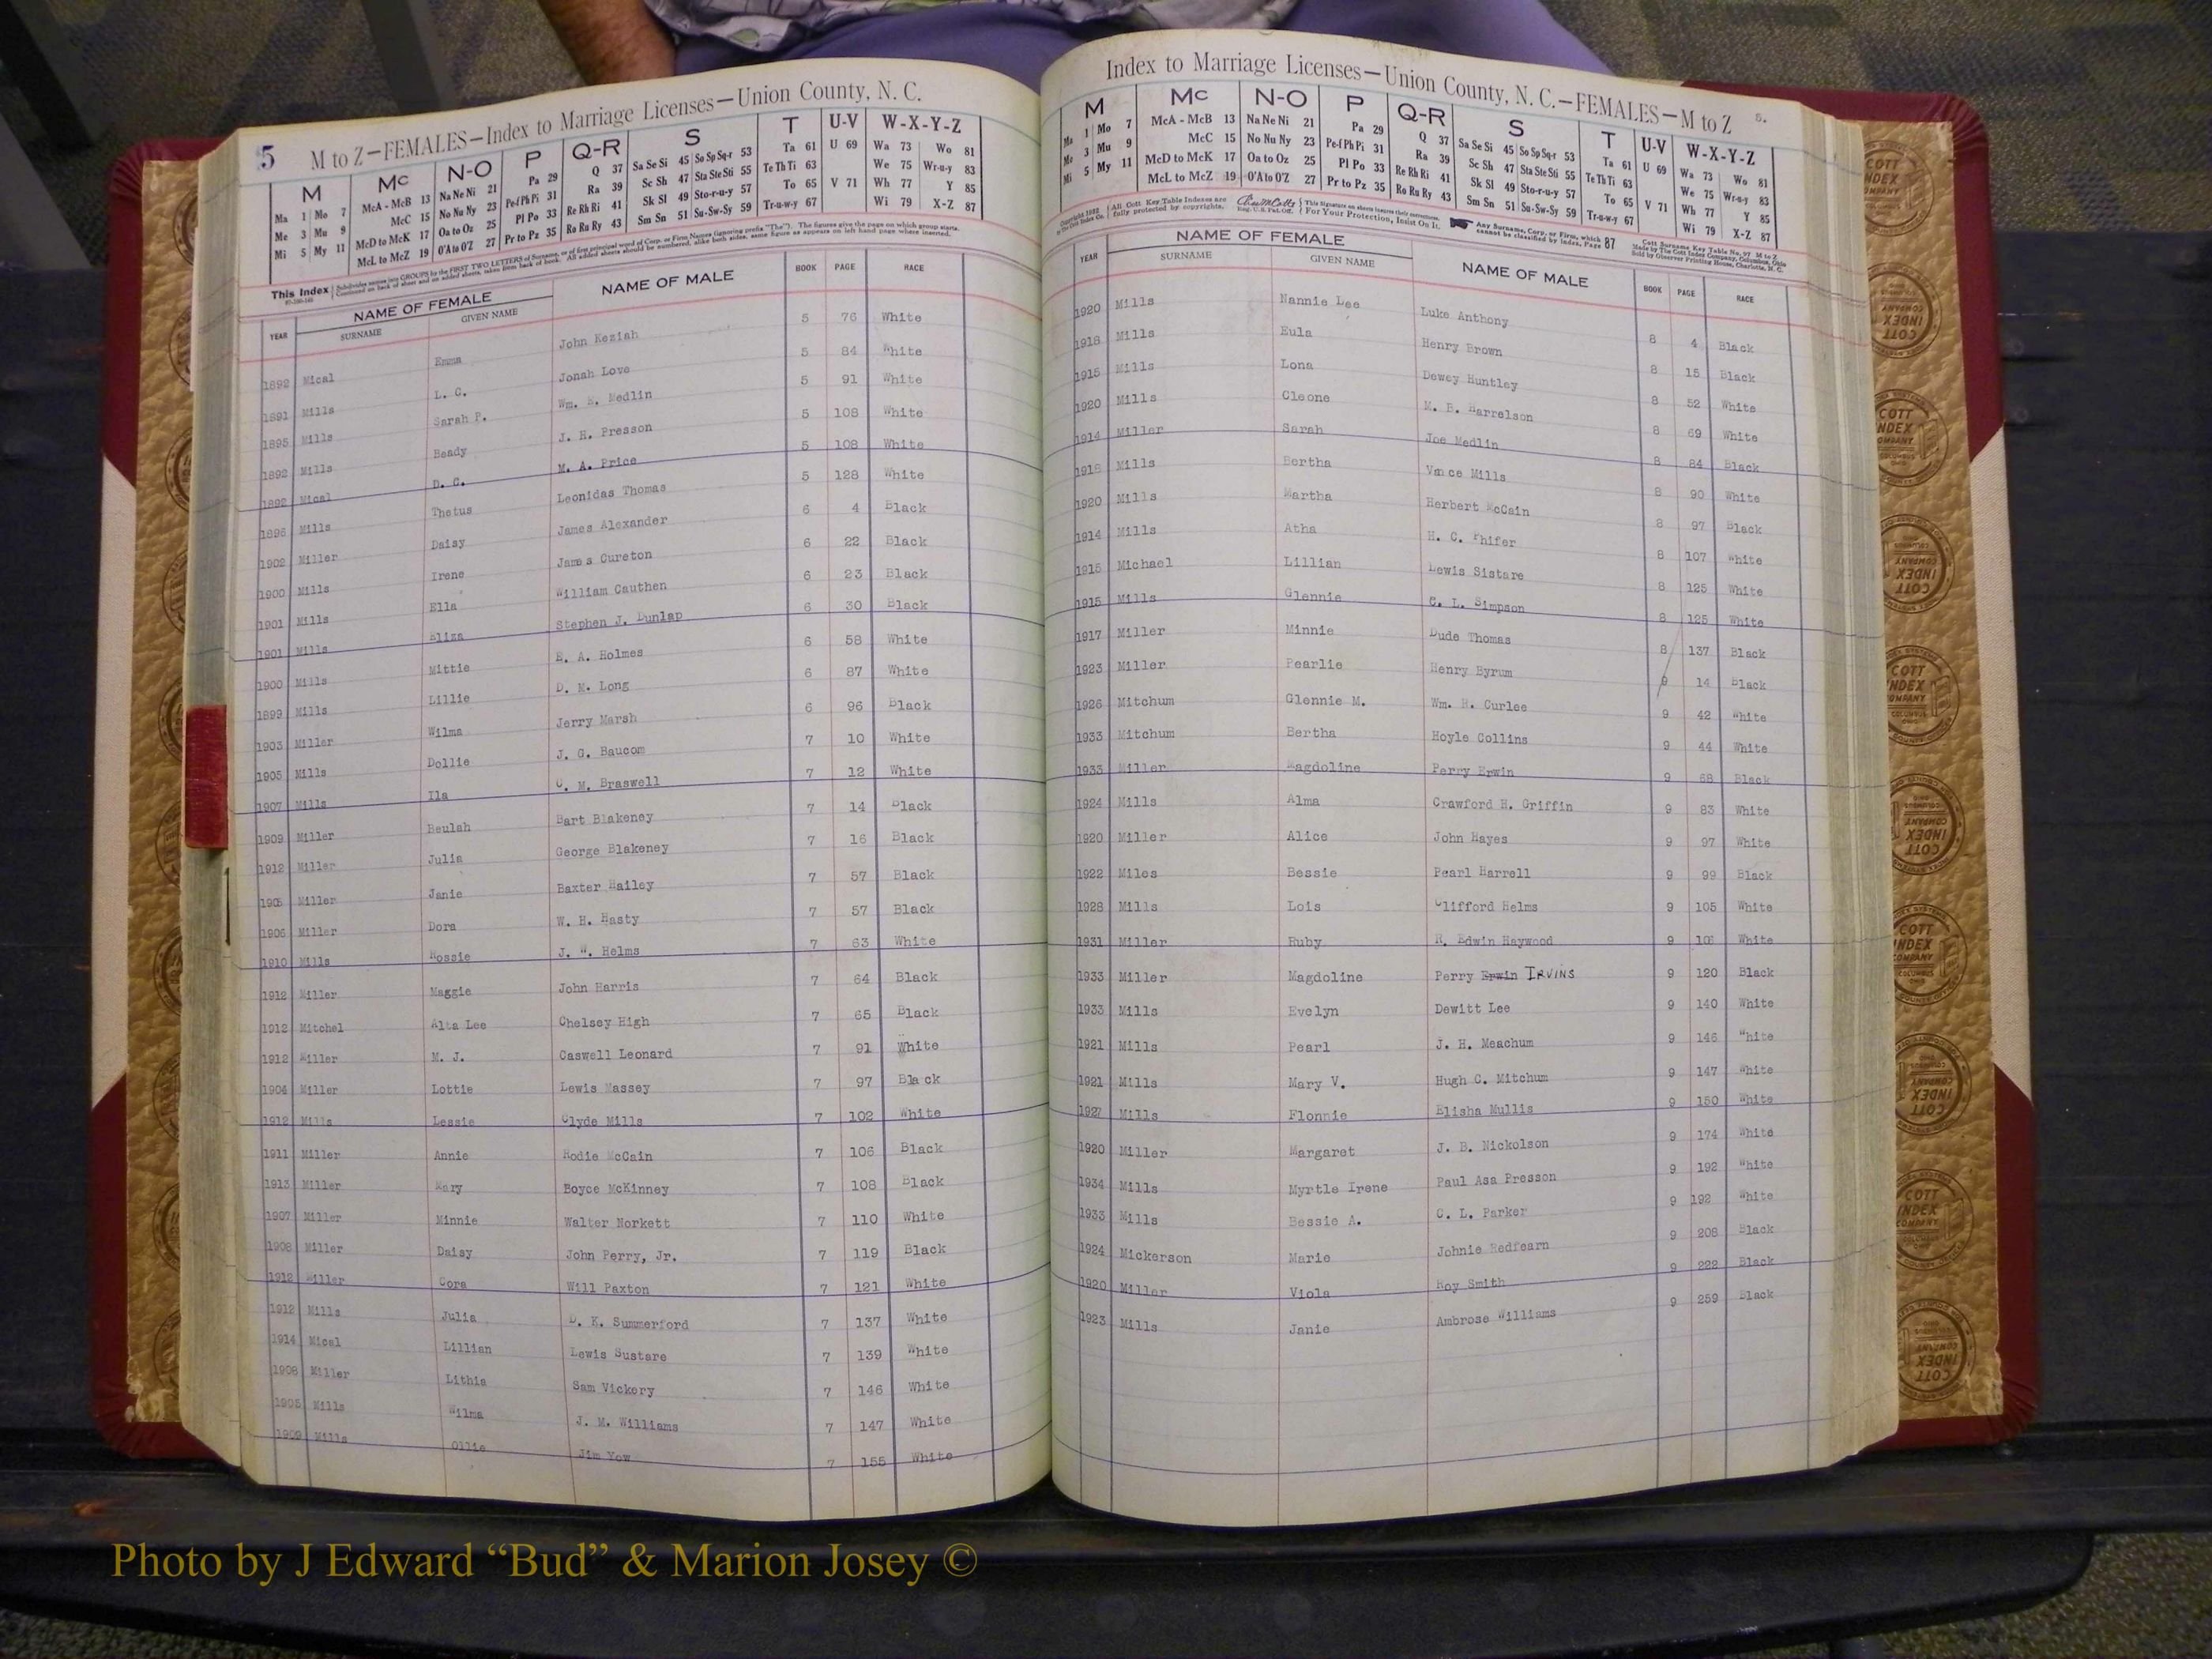 5 M to Z—FEMALES—Index to Marriage Licenses—Union County, N. C.
M Mc N-O P Q-R S T U-V W-X-Y-Z
Ma 1 Mo 7 McA - McB 13 Na Ne Ni 21 Pa 29 Q 37 Sa Se Si 45 So Sp Sq-r 53 Ta 61 U 69 Wa 73 Wo 81
Me 3 Mu 9 McC 15 No Nu Ny 23 Pe-f Ph Pi 31 Ra 39 Sc Sh 47 Sta Ste Sti 55 Te Th Ti 63 We 75 Wr-u-y 83
Mi 5 My 11 McD to McK 17 Oa to Oz 25 Pl Po 33 Re Rh Ri 41 Sk Sl 49 Sto-r-u-y 57 To 65 V 71 Wh 77 Y 85
McL to McZ 19 O'A to O'Z 27 Pr to Pz 35 Ro Ru Ry 43 Sm Sn 51 Su-Sw-Sy 59 Tr-u-w-y 67 Wi 79 X-Z 87
This Index
YEAR NAME OF FEMALE NAME OF MALE BOOK PAGE RACE
SURNAME GIVEN NAME
1892 Mical Emma John Keziah 5 76 White
1891 Mills L. C. Jonah Love 5 84 White
1895 Mills Sarah P. Wm. E. Medlin 5 91 White
1892 Mills Beady J. H. Presson 5 108 White
1892 Mical D. C. M. A. Price 5 108 White
1896 Mills Thetus Leonidas Thomas 5 128 White
1902 Miller Daisy James Alexander 6 4 Black
1900 Mills Irene James Cureton 6 22 Black
1901 Mills Ella William Cauthen 6 23 Black
1901 Mills Eliza Stephen J. Dunlap 6 30 Black
1900 Mills Mittie E. A. Holmes 6 58 White
1899 Mills Lillie D. M. Long 6 87 White
1903 Miller Wilma Jerry Marsh 6 96 Black
1905 Mills Dollie J. G. Baucom 7 10 White
1907 Mills Ila C. M. Braswell 7 12 White
1909 Miller Beulah Bart Blakeney 7 14 Black
1912 Miller Julia George Blakeney 7 16 Black
1905 Miller Janie Baxter Hailey 7 57 Black
1906 Miller Dora W. H. Hasty 7 57 Black
1910 Mills Rossie J. W. Helms 7 63 White
1912 Miller Maggie John Harris 7 64 Black
1912 Mitchel Alta Lee Chelsey High 7 65 Black
1912 Miller M. J. Caswell Leonard 7 91 White
1904 Miller Lottie Lewis Massey 7 97 Black
1912 Mills Lessie Clyde Mills 7 102 White
1911 Miller Annie Rodie McCain 7 106 Black
1913 Miller Mary Boyce McKinney 7 108 Black
1907 Miller Minnie Walter Norkett 7 110 White
1908 Miller Daisy John Perry, Jr. 7 119 Black
1912 Miller Cora Will Paxton 7 121 White
1912 Mills Julia D. K. Summerford 7 137 White
1914 Mical Lillian Lewis Sustare 7 139 White
1908 Miller Lithia Sam Vickory 7 146 White
1905 Mills Wilma J. M. Williams 7 147 White
1909 Mills Ollie Jim Yow 7 155 White
Index to Marriage Licenses—Union County, N. C.—FEMALES—M to Z 5.
M Mc N-O P Q-R S T U-V W-X-Y-Z
Ma 1 Mo 7 McA - McB 13 Na Ne Ni 21 Pa 29 Q 37 Sa Se Si 45 So Sp Sq-r 53 Ta 61 U 69 Wa 73 Wo 81
Me 3 Mu 9 McC 15 No Nu Ny 23 Pe-f Ph Pi 31 Ra 39 Sc Sh 47 Sta Ste Sti 55 Te Th Ti 63 We 75 Wr-u-y 83
Mi 5 My 11 McD to McK 17 Oa to Oz 25 Pl Po 33 Re Rh Ri 41 Sk Sl 49 Sto-r-u-y 57 To 65 V 71 Wh 77 Y 85
McL to McZ 19 O'A to O'Z 27 Pr to Pz 35 Ro Ru Ry 43 Sm Sn 51 Su-Sw-Sy 59 Tr-u-w-y 67 Wi 79 X-Z 87
All Cott Key Table Indexes are fully protected by copyrights. For Your Protection, Insist On It. Any Surname, Corp. or Firm, which cannot be classified by Index, Page 87
YEAR NAME OF FEMALE NAME OF MALE BOOK PAGE RACE
SURNAME GIVEN NAME
1920 Mills Nannie Lee Luke Anthony 8 4 Black
1918 Mills Eula Henry Brown 8 15 Black
1915 Mills Lona Dewey Huntley 8 52 White
1920 Mills Cleone M. B. Harrelson 8 69 White
1914 Miller Sarah Joe Medlin 8 84 Black
1916 Mills Bertha Vance Mills 8 90 White
1920 Mills Martha Herbert McCain 8 97 Black
1914 Mills Atha H. C. Phifer 8 107 White
1915 Michael Lillian Lewis Sistare 8 125 White
1915 Mills Glennie C. L. Simpson 8 125 White
1917 Miller Minnie Dude Thomas 8 137 Black
1923 Miller Pearlie Henry Byrum 9 14 Black
1926 Mitchum Glennie M. Wm. H. Curlee 9 42 White
1933 Mitchum Bertha Hoyle Collins 9 44 White
1933 Miller Magdoline Perry Erwin 9 68 Black
1924 Mills Alma Crawford H. Griffin 9 83 White
1920 Miller Alice John Hayes 9 97 White
1922 Miles Bessie Pearl Harrell 9 99 Black
1928 Mills Lois Clifford Helms 9 105 White
1931 Miller Ruby R. Edwin Haywood 9 White
1933 Miller Magdoline Perry Erwin IRVINS 9 120 Black
1933 Mills Evelyn Dewitt Lee 9 140 White
1921 Mills Pearl J. H. Meachum 9 146 White
1921 Mills Mary V. Hugh C. Mitchum 9 147 White
1927 Mills Flonnie Elisha Mullis 9 150 White
1920 Miller Margaret J. B. Nickolson 9 174 White
1934 Mills Myrtle Irene Paul Asa Presson 9 192 White
1933 Mills Bessie A. C. L. Parker 9 192 White
1924 Mickerson Marie Johnie Redfearn 9 208 Black
1920 Miller Viola Roy Smith 9 228 Black
1923 Mills Janie Ambrose Williams 9 259 Black
Photo by J Edward “Bud” & Marion Josey ©